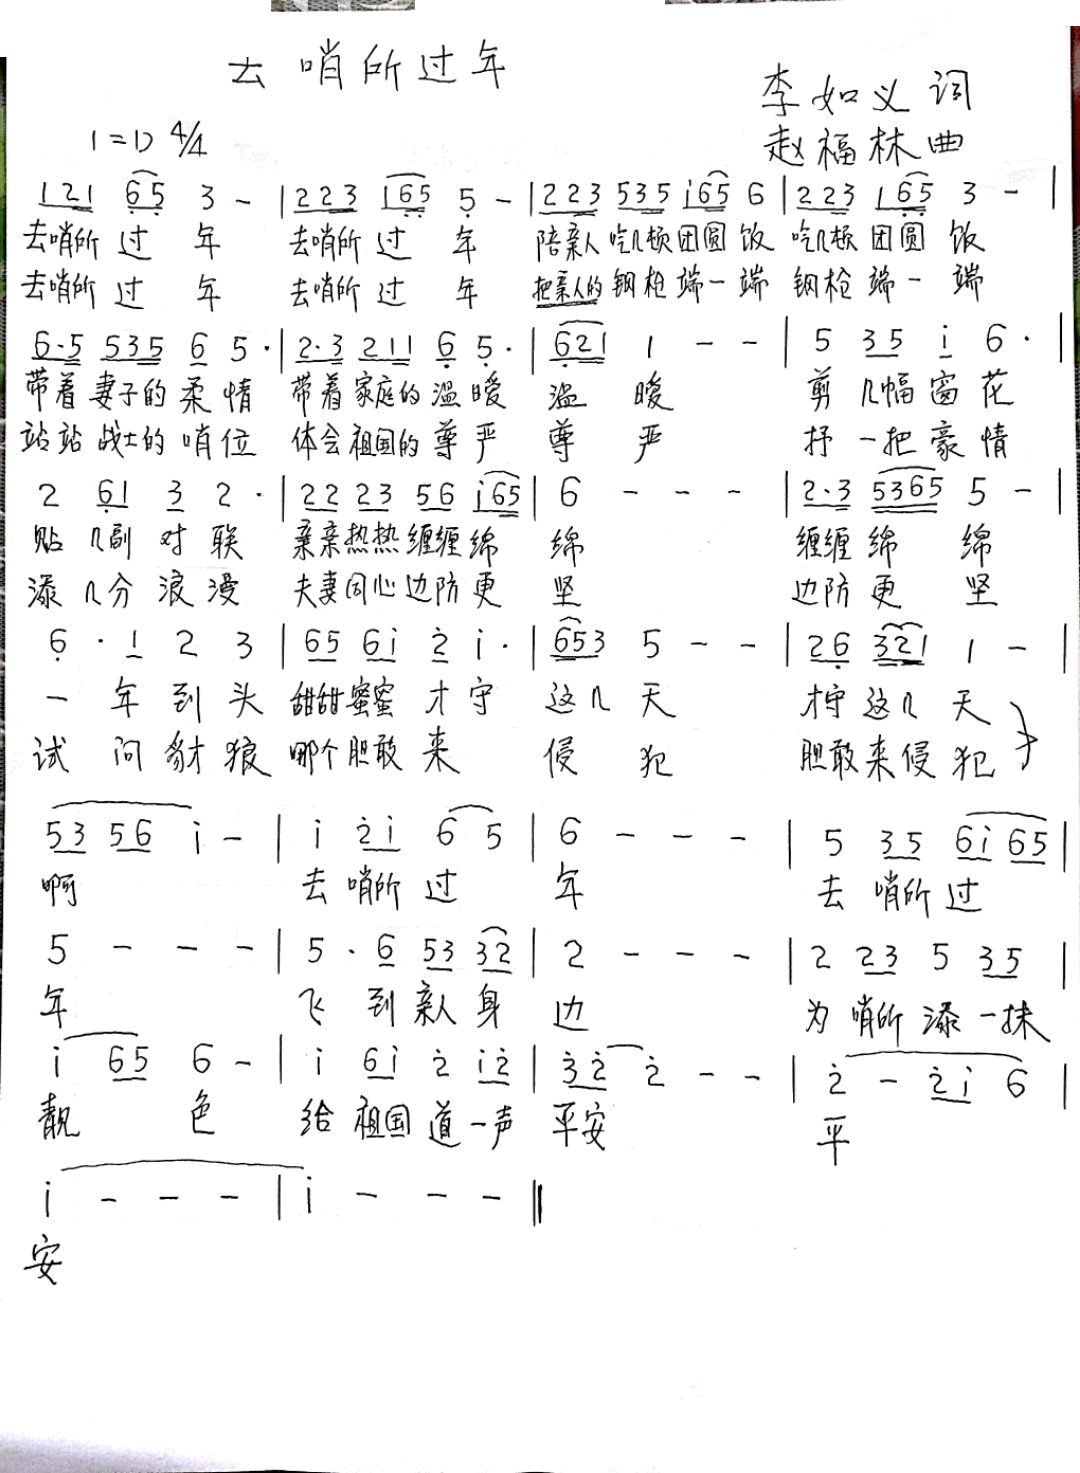 去哨所过年
李如义词
1=D 4/4
赵福林曲
121 65 3 - | 223 165 5 - | 223 535 i65 6 | 223 165 3 - |
去哨所 过 年 去哨所 过 年 陪亲人 吃几顿 团圆 饭 吃几顿 团圆 饭
去哨所 过 年 去哨所 过 年 把亲人的 钢枪 端一端 钢枪 端一端
6·5 535 6 5· | 2·3 211 6 5· | 621 1 - - | 5 35 i 6· |
带着 妻子的 柔情 带着 家庭的 温暖 温 暖 剪 几幅 窗 花
站站 战士的 哨位 体会 祖国的 尊严 尊 严 抒 一把 豪 情
2 61 3 2· | 22 23 56 i65 | 6 - - - | 2·3 5365 5 - |
贴 几副 对 联 亲亲热热 缠缠绵 绵 缠缠 绵 绵
添 几分 浪 漫 夫妻同心 边防更 坚 边防 更 坚
6· 1 2 3 | 65 6i 2̇ i· | 653 5 - - | 26 321 1 - |
一 年 到 头 甜甜蜜蜜 才守 这几 天 才守 这几 天
试 问 豺 狼 哪个胆敢 来 侵 犯 胆敢来侵 犯
53 56 i - | i 2̇i 6 5 | 6 - - - | 5 35 6i 65 |
啊 去 哨所 过 年 去 哨所 过
5 - - - | 5· 6 53 32 | 2 - - - | 2 23 5 35 |
年 飞 到 亲人 身 边 为 哨所 添 一抹
i 65 6 - | i 6i 2̇ i2̇ | 3̇2̇ 2̇ - - | 2̇ - 2̇i 6 |
靓 色 给 祖国 道 一声 平安 平
i - - - | i - - - ‖
安